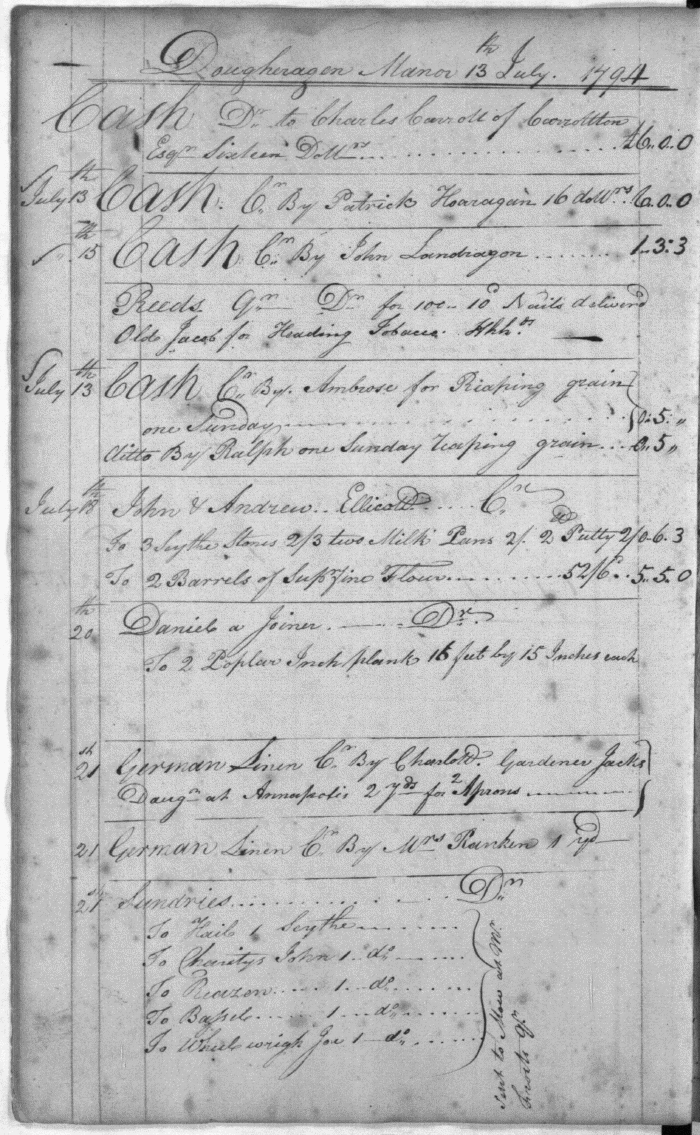 Dougheragen Manor 13th July. 1794
Cash Dr to Charles Carroll of Carrollton
Esqr Sixteen Dollrs 6..0.0
July 13th Cash. Cr By Patrick Hoaragan 16 dollrs. 6.0.0
15th Cash Cr By John Landragon 1..3.3
Reeds Qr Dr for 100 - 10d Nails deliverd
Old Jacob for Heading Tobacco. 4hhds
July 13th Cash Cr By. Ambrose for Reaping grain
one Sunday 0.5.„
ditto By Ralph one Sunday reaping grain 0.5„
July 18th John & Andrew Ellicott Cr
To 3 Scythe Stones 2/3 two Milk Pans 2/. 2 lb Putty 2/ 0.6.3
To 2 Barrels of Suprfine Flour 52/6 5.5.0
20th Daniel a Joiner. Dr.
To 2 Poplar Inch plank 16 feet by 15 Inches each
21st German Linen Cr By Charlotte. Gardener Jacks
Daugr at Annapolis 2 yds for 2 Aprons
21 German Linen Cr By Mrs Ranken 1 yd
21st Sundries Dr
To Hail 1 Scythe
To Charitys John 1 do
To Reazon 1 do
To Bassel 1 do
To Wheelwrigh Joe 1 do
Sent to Mow at Mr.
Frosts Qr